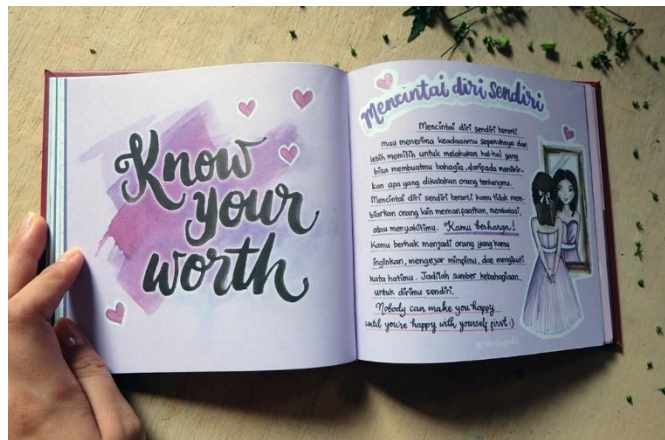 Know
your
worth
Mencintai diri sendiri
Mencintai diri sendiri berarti
mau menerima keadaanmu sepenuhnya dan
lebih memilih untuk melakukan hal-hal yang
bisa membuatmu bahagia, daripada memikir-
kan apa yang dikatakan orang tentangmu.
Mencintai diri sendiri berarti kamu tidak mem-
biarkan orang lain memanfaatkan, membatasi,
atau menyakitimu. Kamu berharga!
Kamu berhak menjadi orang yang kamu
inginkan, mengejar mimpimu, dan mengikuti
kata hatimu. Jadilah sumber kebahagiaan
untuk dirimu sendiri.
Nobody can make you happy
until you're happy with yourself first :)